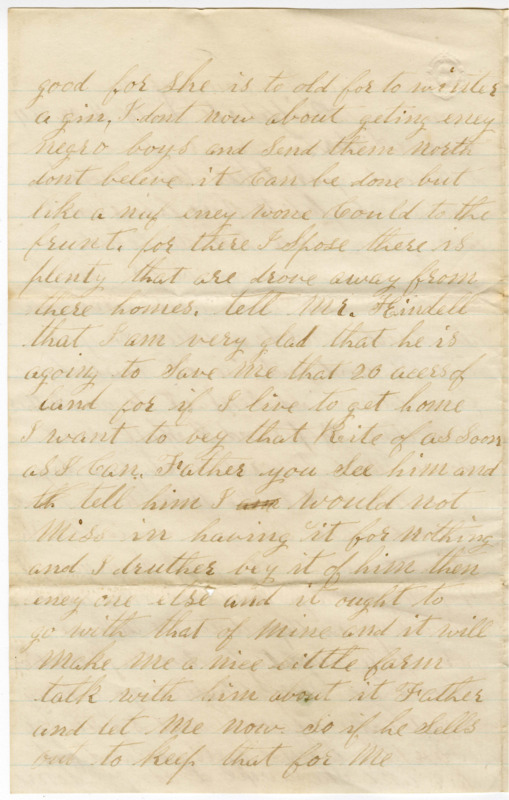 good for she is to old for to winter
a gin, I dont now about geting eney
negro boys and send them north
dont beleve it can be done but
like a nuf eney wone Could to the
frunt. for there I Spose there is
plenty that are drove away from
there homes. tell Mr. Hindell
that I am very glad that he is
agoing to Save Me that 20 acers of
land for if I live to get home
I want to bey that Rite of as Soon
as I Can. Father you See him and
th tell him I am would not
Miss in having it for nothing
and I druther bey it of him then
eney one else and it ought to
go with that of mine and it will
Make Me a nice little farm
talk with him about it Father
and let Me now. So if he Sells
out to keep that for Me